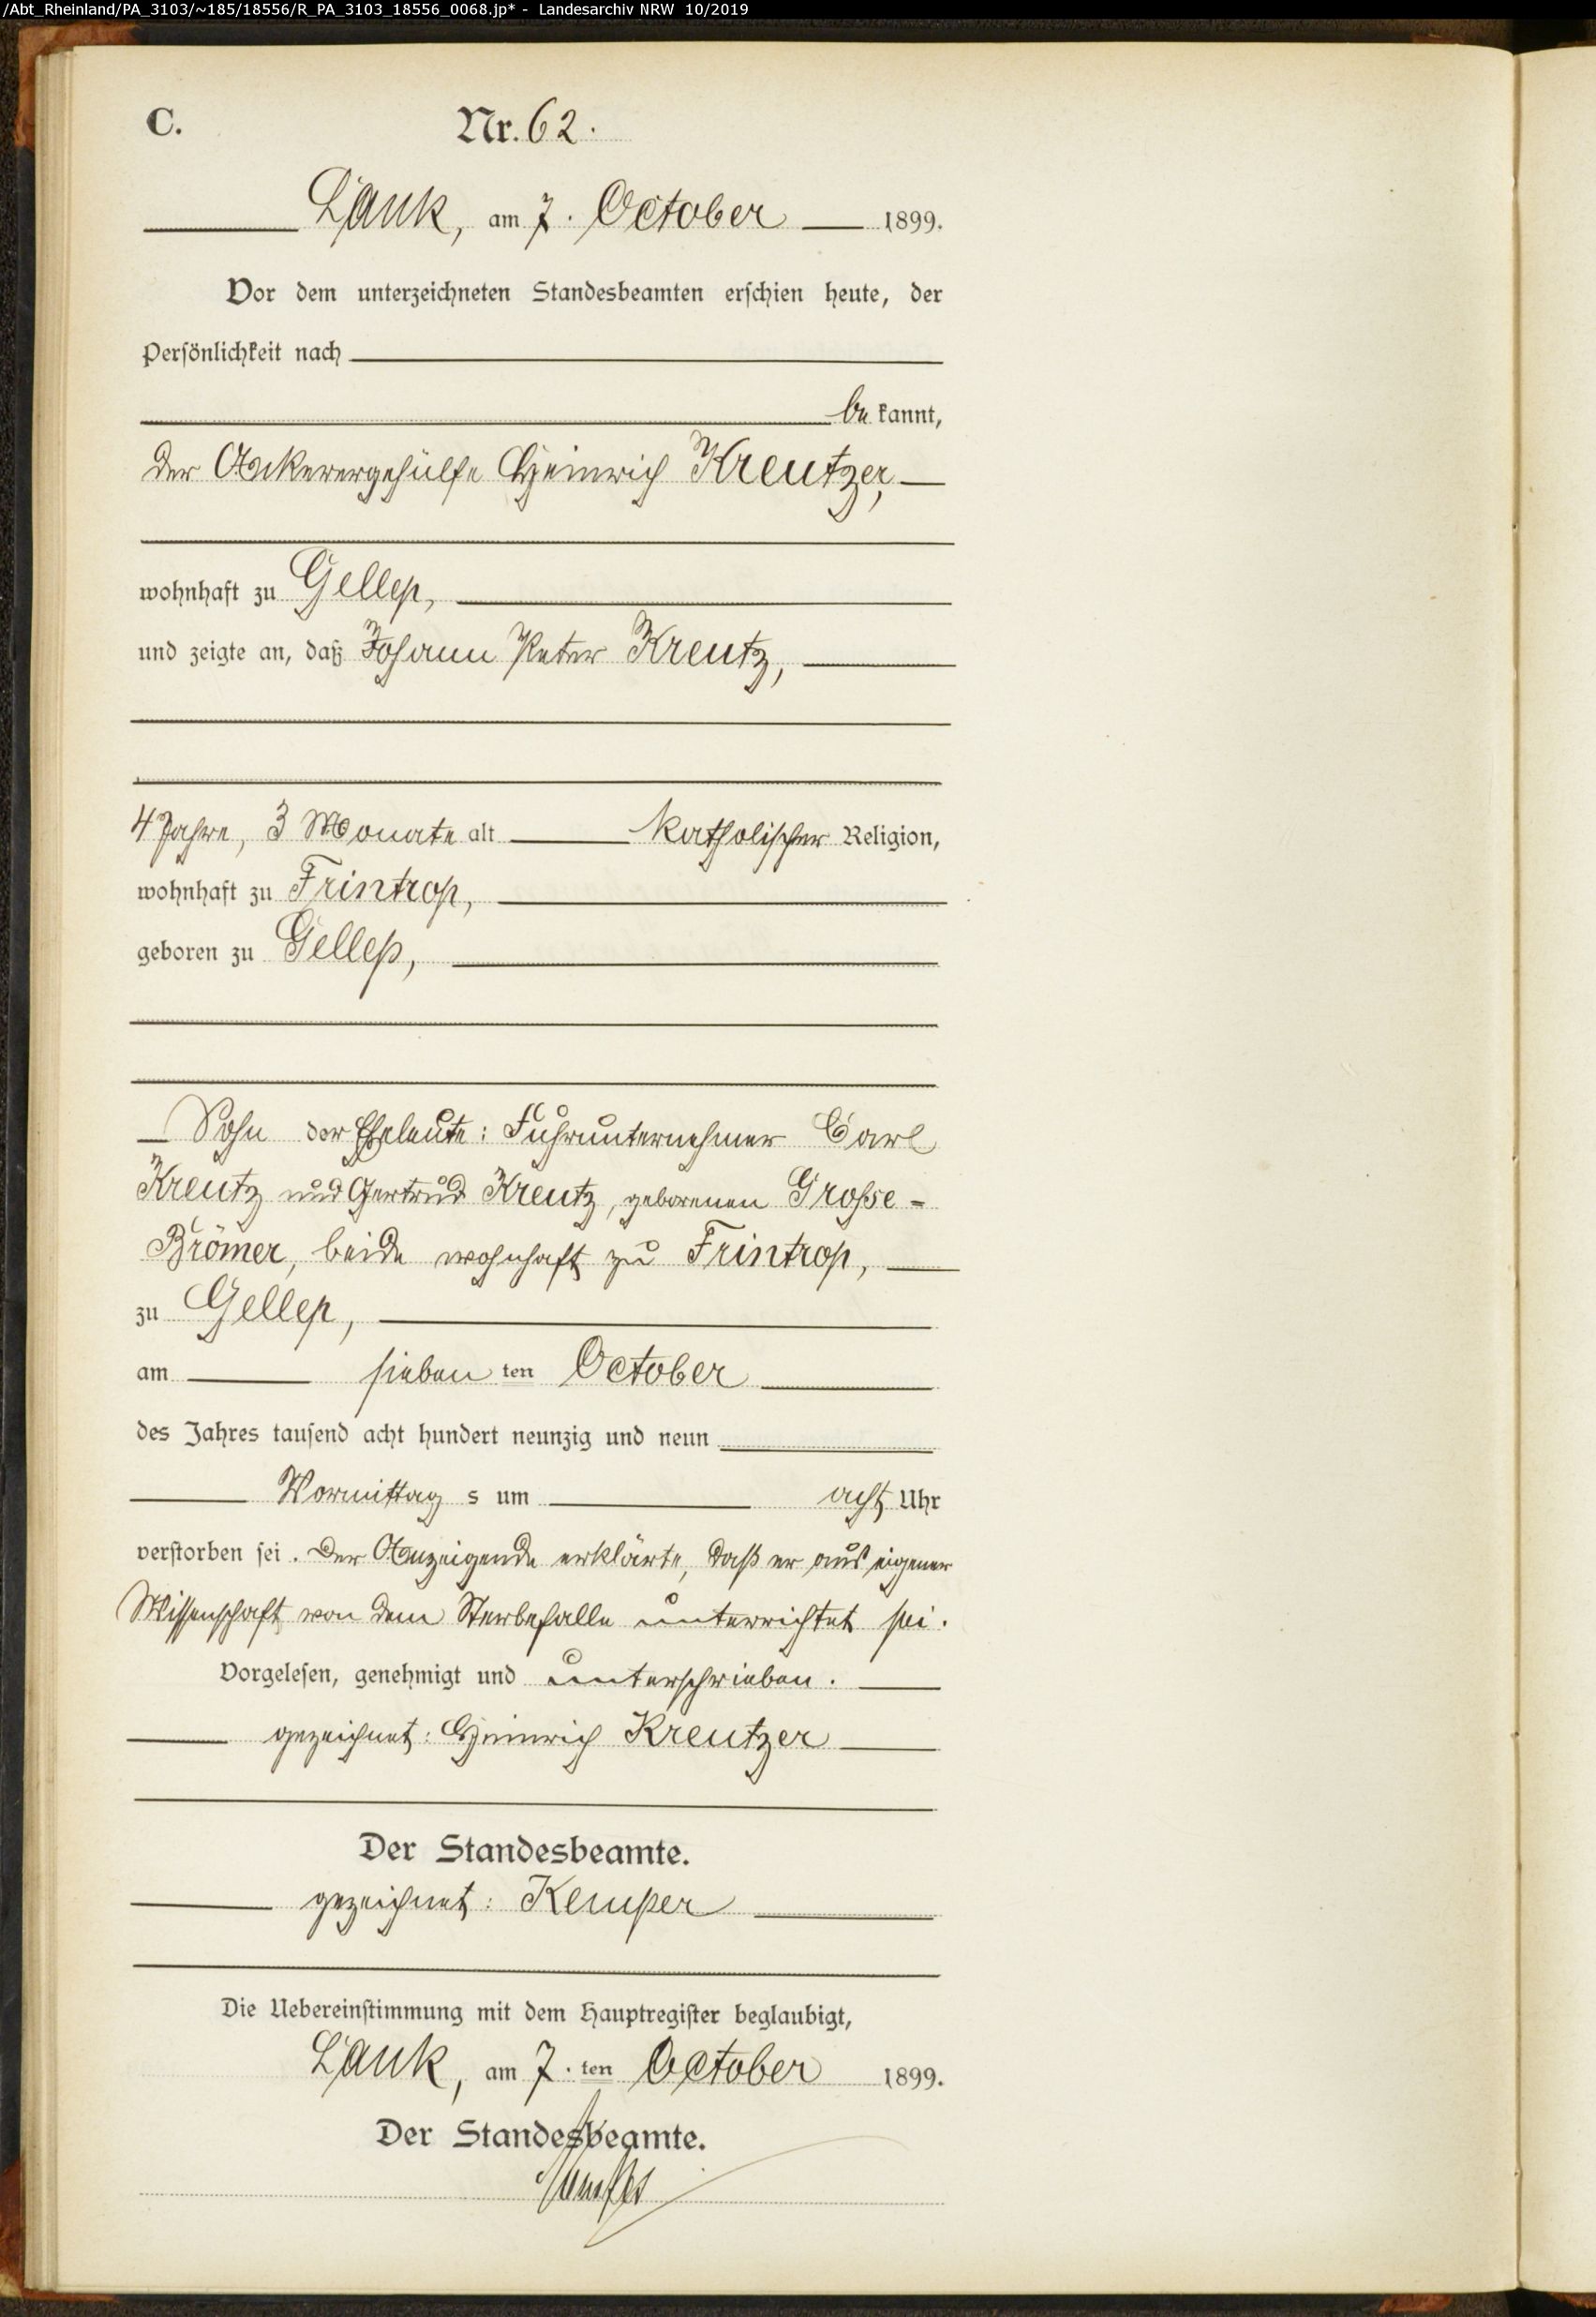 /Abt_Rheinland/PA_3103/~185/18556/R_PA_3103_18556_0068.jp* - Landesarchiv NRW 10/2019
C. Nr. 62.
Lank, am 7. October 1899.
Vor dem unterzeichneten Standesbeamten erschien heute, der
Persönlichkeit nach
be kannt,
der Ackerergehülfe Heinrich Kreutzer,
wohnhaft zu Gellep,
und zeigte an, daß Johann Peter Kreutz,
4 Jahre, 3 Monate alt katholischer Religion,
wohnhaft zu Frintrop,
geboren zu Gellep,
Sohn der Eheleute: Fuhrunternehmer Carl
Kreutz und Gertrud Kreutz, geborenen Grosse-
Brömer, beide wohnhaft zu Frintrop,
zu Gellep,
am sieben ten October
des Jahres tausend acht hundert neunzig und neun
Vormittag s um acht Uhr
verstorben sei. Der Anzeigende erklärte, daß er aus eigener
Wissenschaft von dem Sterbefalle unterrichtet sei.
Vorgelesen, genehmigt und unterschrieben.
gezeichnet: Heinrich Kreutzer
Der Standesbeamte.
gezeichnet: Kemper
Die Uebereinstimmung mit dem Hauptregister beglaubigt,
Lank, am 7. ten October 1899.
Der Standesbeamte.